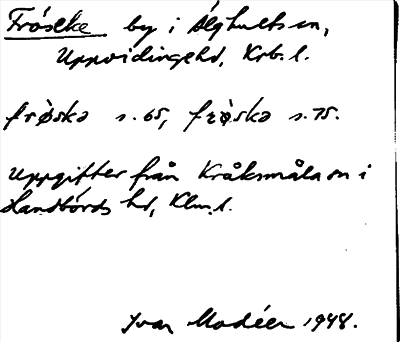 Fröseke by i Älghults sn,
Uppvidinge hd, Krb. l.
frö̀skə s. 65, frö̀skə s. 75.
Uppgifter från Kråksmåla sn i
Handbörds hd, Klm. l.
Ivar Modéer 1948.